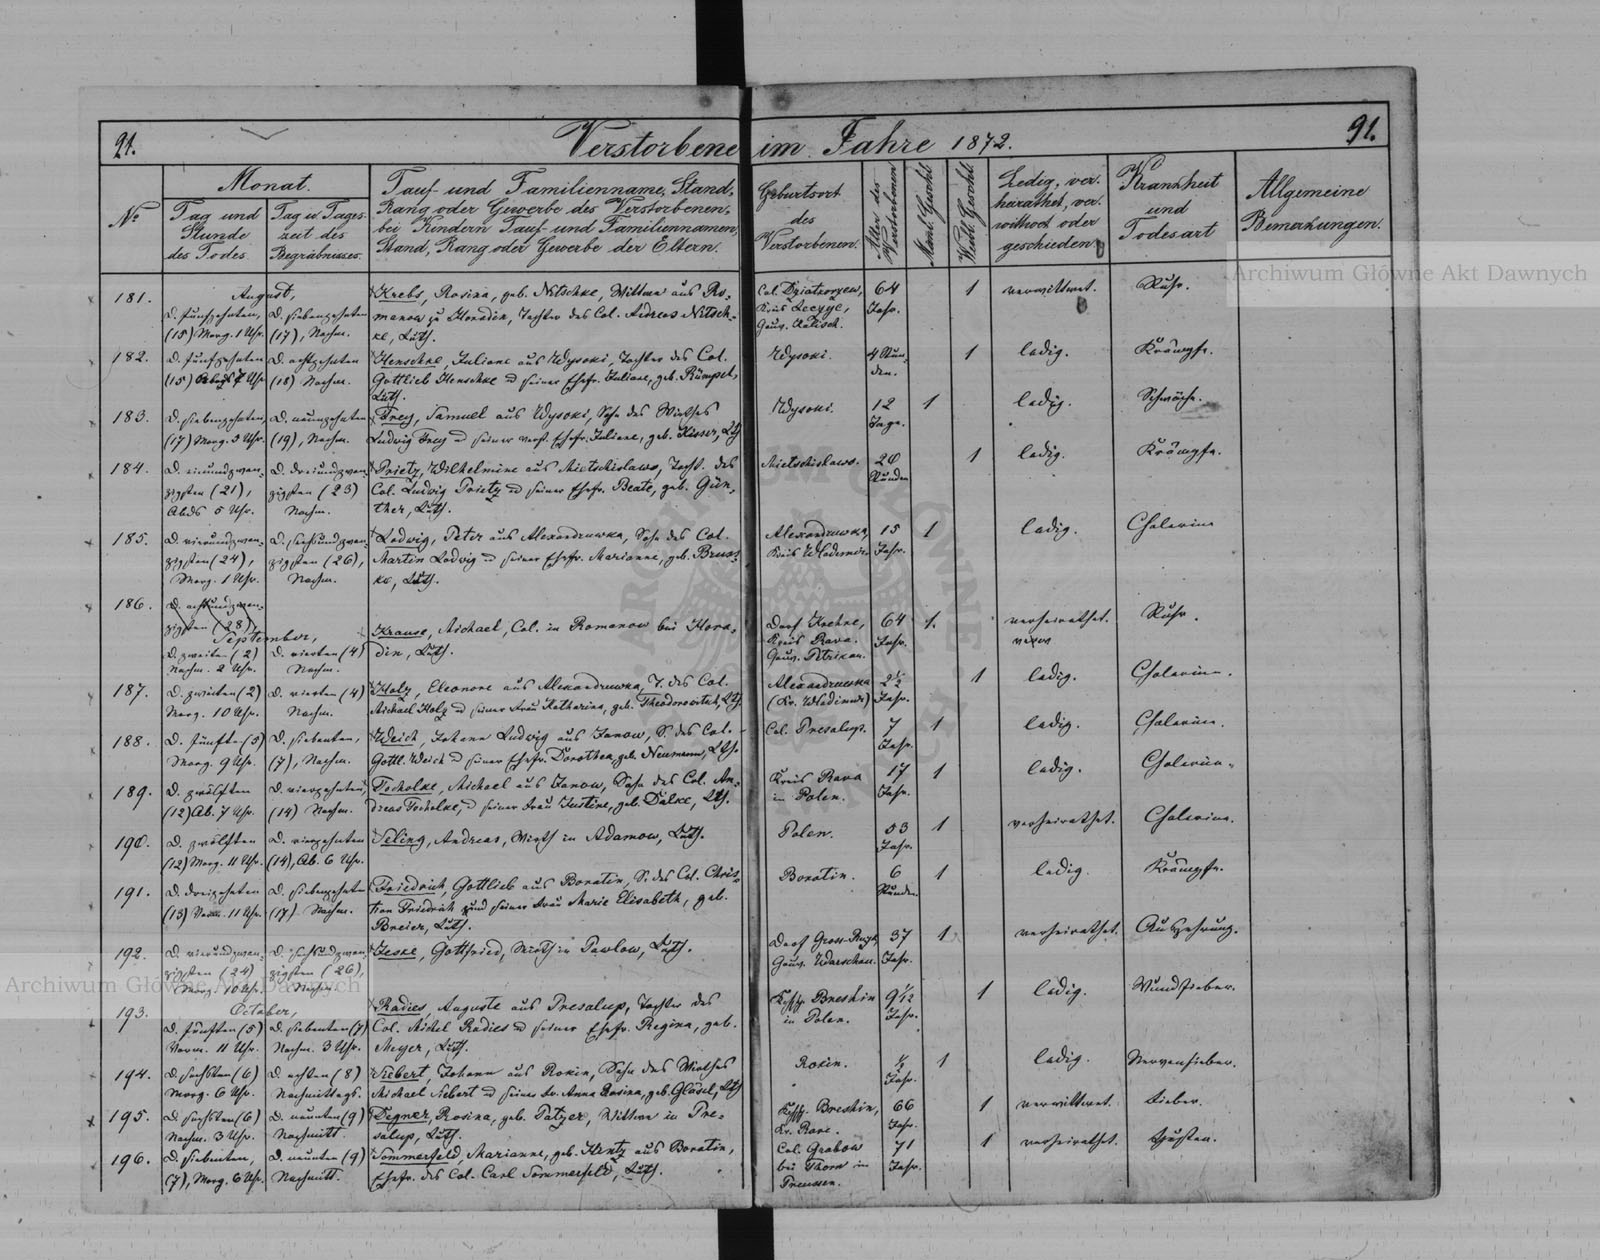 91.
Verstorbene im Jahre 1872.
91.
№
Monat.
Tag und
Stunde
des Todes.
Tag u. Tages-
zeit des
Begräbnisses.
Tauf- und Familienname, Stand,
Rang oder Gewerbe des Verstorbenen,
bei Kindern Tauf- und Familiennamen,
Stand, Rang oder Gewerbe der Eltern.
Geburtsort
des
Verstorbenen.
Alter des
Verstorbenen
Männl. Geschl.
Weibl. Geschl.
Ledig, ver-
heirathet, ver-
wittwet oder
geschieden
Krankheit
und
Todesart
Allgemeine
Bemerkungen.
181.
August,
D. fünfzehnten,
(15) Morg. 1 Uhr.
D. siebenzehnten
(17), Nachm.
Krebs, Rosina, geb. Nitschke, Wittwe aus Ro-
manow zu Horodin, Tochter des Col. Andreas Nitsch-
ke, Luth.
Col.
Kreis
Gouv. Kalisch.
64
Jahr.
1
verwittwet.
Ruhr.
182.
D. fünfzehnten
(15) 7 Uhr
D. achtzehnten
(18) Nachm.
Henschke, Juliane aus Wysoki, Tochter des Col.
Gottlieb Henschke u seiner Ehefr. Juliane, geb.
Luth.
Wysoki.
4 Stun-
den.
1
ledig.
Krämpfe.
183.
D. siebenzehnten,
(17) Morg. 3 Uhr.
D. neunzehnten
(19), Nachm.
Frey, Samuel aus Wysoki, Sohn des Wirthes
Ludwig Frey u seiner verst. Ehefr. Juliane, geb. Kisser, Lth
Wysoki.
12
Tage.
1
ledig.
Schwäche.
184.
D. einundzwan-
zigsten (21),
Abds 5 Uhr.
D. dreiundzwan-
zigsten (23)
Nachm.
Prietz, Wilhelmine aus Mietschislawo, Tocht. des
Col. Ludwig Prietz u seiner Ehefr. Beate, geb. Gün-
ther, Luth.
Mietschislawo.
20
Stunden
1
ledig.
Krämpfe.
185.
D. vierundzwan-
zigsten (24),
Morg. 1 Uhr.
D. sechsundzwan-
zigsten (26),
Nachm.
Ladwig, Peter aus Alexandruwka, Sohn des Col.
Martin Ladwig u seiner Ehefr. Marianne, geb. Brus-
ke, Luth.
Alexandruwka,
Kreis Wladimir.
15
Jahr.
1
ledig.
Cholerine
186.
D. achtundzwan-
zigsten (28),
September,
D. zweiten (2)
Nachm. 2 Uhr.
D. vierten (4)
Nachm.
Krause, Michael, Col. in Romanow bei Horo-
din, Luth.
Dorf
Kreis Rava.
Gouv. Petrikau.
64
Jahr.
1.
verheirathet.
Ruhr.
187.
D. zweiten (2)
Morg. 10 Uhr.
D. vierten (4)
Nachm.
Holz, Eleonore aus Alexandruwka, T. des Col.
Michael Holz u seiner Frau Katharina, geb. Theodorovitsch, Lth.
Alexandruwka
(Kr. Wladimir)
2½
Jahr.
1
ledig.
Cholerine.
188.
D. fünften (5)
Morg. 9 Uhr.
D. siebenten,
(7), Nachm.
Weich, Johann Ludwig aus Janow, S. des Col.
Gottl. Weich u seiner Ehefr. Dorothea, geb. Neumann, Lth.
Col. Presalup.
7
Jahr.
1
ledig.
Cholerine.
189.
D. zwölften
(12) Ab. 7 Uhr.
D. vierzehnten,
(14) Nachm.
Tscholke, Michael aus Janow, Sohn des Col. An-
dreas Tscholke, u seiner Frau Justine, geb. Dalke, Lth.
Kreis Rava
in Polen.
17
Jahr.
1
ledig.
Cholerine.
190.
D. zwölften
(12) Morg. 11 Uhr.
D. vierzehnten
(14), Ab. 6 Uhr.
Seling, Andreas, Wirth in Adamow, Luth.
Polen.
53
Jahr.
1
verheirathet.
Cholerine.
191.
D. dreizehnten
(13) 11 Uhr.
D. siebenzehnten
(17) Nachm.
Friedrich, Gottlieb aus Boratin, S. des Col. Chris-
tian Friedrich und seiner Frau Marie Elisabeth, geb.
Breier, Luth.
Boratin.
6
Stunden.
1
ledig.
Krämpfe.
192.
D. vierundzwan-
zigsten (24)
Morg. 10 Uhr.
D. sechsundzwan-
zigsten (26),
Nachm.
Jeske, Gottfried, Wirth in Pawlow, Luth.
Dorf Gross-
Gouv. Warschau.
37
Jahr.
1
verheirathet.
Auszehrung.
193.
October,
D. fünften (5)
Vorm. 11 Uhr.
D. siebenten (7)
Nachm. 3 Uhr.
Radies, Auguste aus Presalup, Tochter des
Col. Michel Radies u seiner Ehefr. Regina, geb.
Meyer, Luth.
Kchsp. Breshin
in Polen.
9 1/12
Jahr.
1
ledig.
Wundfieber.
194.
D. sechsten (6)
Morg. 6 Uhr.
D. achten (8)
Nachmittags.
Siebert, Johann aus Rokin, Sohn des Wirthes
Michael Siebert u seiner Fr. Anna Rosina, geb. Gläsel, Lth
Rokin.
Jahr.
1
ledig.
Nervenfieber.
195.
D. sechsten (6)
Nachm. 3 Uhr.
D. neunten (9)
Nachmitt.
Degner, Rosina, geb. Patzer, Wittwe in Pre-
salup, Luth.
Kchsp. Breshin,
Kr. Rave.
66
Jahr.
1
verwittwet.
Fieber.
196.
D. siebenten,
(7), Morg. 6 Uhr.
D. neunten (9)
Nachmitt.
Sommerfeld, Marianne, geb. Hentz aus Boratin,
Ehefr. des Col. Carl Sommerfeld, Luth.
Col. Grabow
bei Thorn in
Preussen.
71
Jahr.
1
verheirathet.
Husten.
Archiwum Główne Akt Dawnych
Archiwum Główne Akt Dawnych